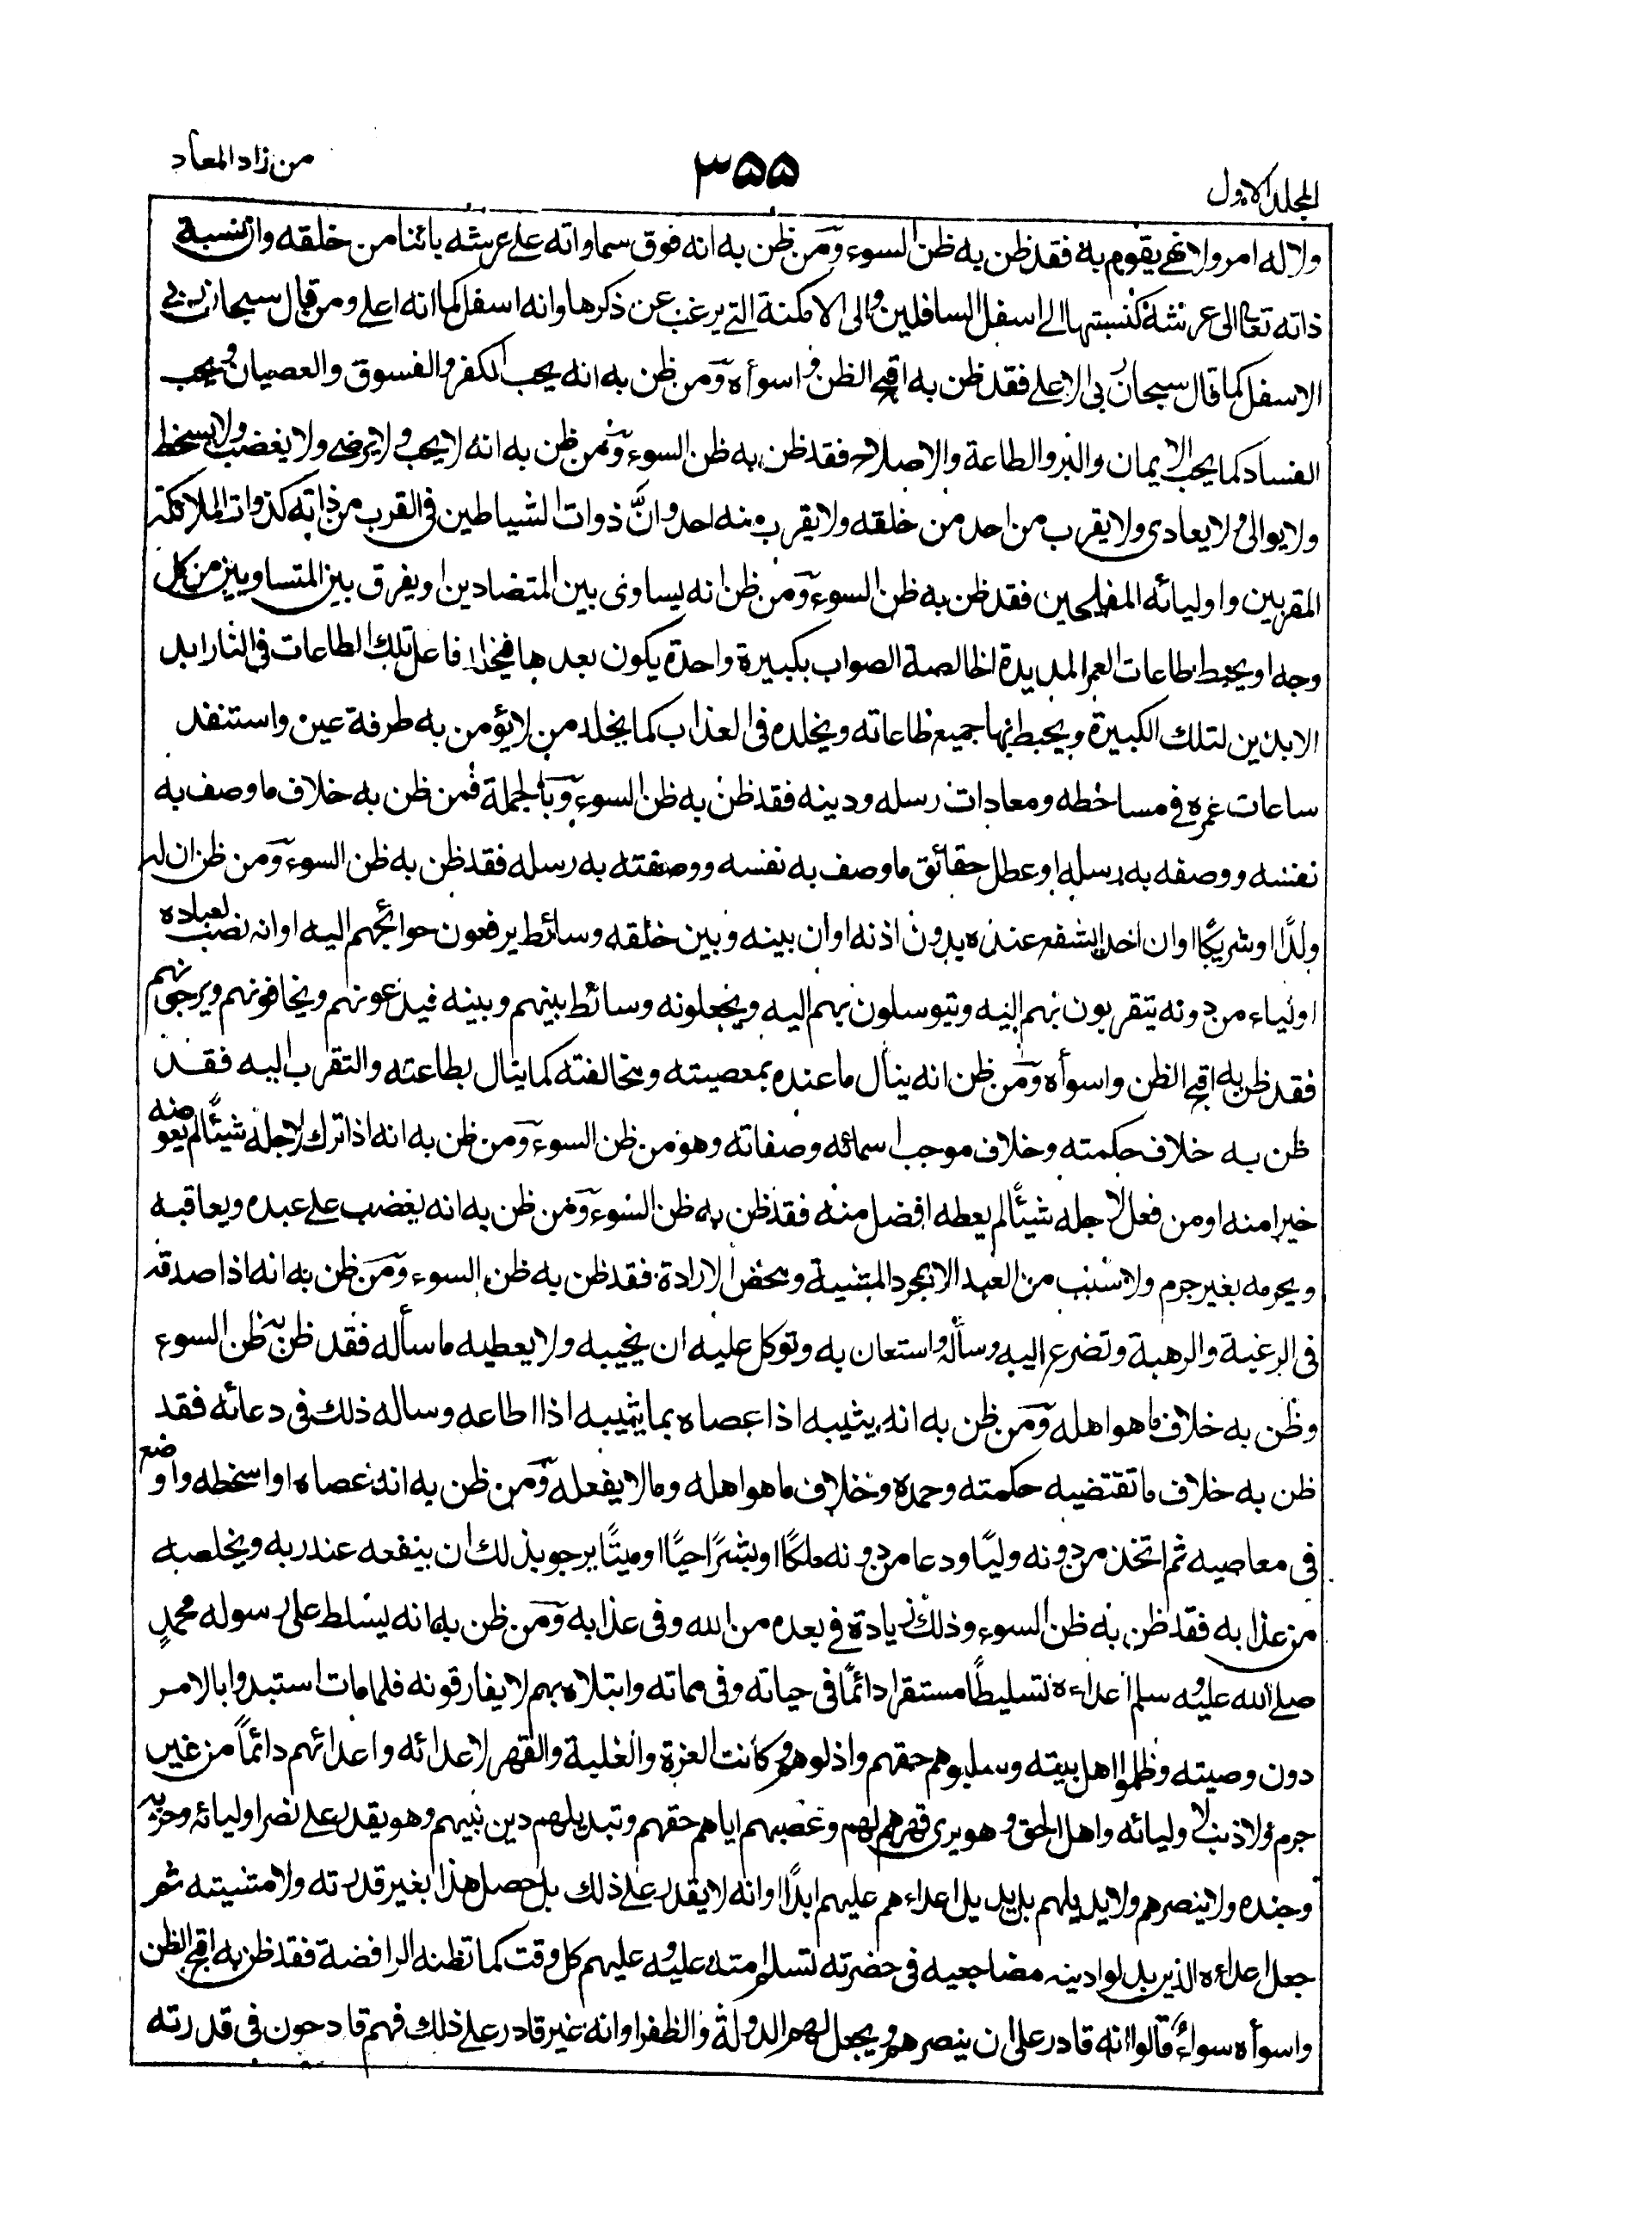 المجلد الاول
٣٥٥
من زاد المعاد
ولا له امر ولا نهي يقوم به فقد ظن به ظن السوء ومن ظن به انه فوق سماواته على عرشه بائنا من خلقه وان نسبة
ذاته تعالى الى عرشه كنسبتها الى اسفل السافلين والى الامكنة التي يرغب عن ذكرها وانه اسفل كما انه اعلى ومن قال سبحان ربي
الاسفل كما قال سبحان ربي الاعلى فقد ظن به اقبح الظن و اسوأه ومن ظن به انه يحب الكفر والفسوق والعصيان ويحب
الفساد كما يحب الايمان والبر والطاعة والاصلاح فقد ظن به ظن السوء ومن ظن به انه لا يحب ولا يرضى ولا يغضب ولا يسخط
ولا يوالى ولا يعادى ولا يقرب من احد من خلقه ولا يقرب منه احد وانّ ذوات الشياطين في القرب من ذاته كذوات الملائكة
المقربين واوليائه المفلحين فقد ظن به ظن السوء ومن ظن انه يساوى بين المتضادين او يفرق بين المتساويين من كل
وجه او يحبط طاعات العمر المديدة الخالصة الصواب بكبيرة واحدة يكون بعدها فيخلد فاعل تلك الطاعات في النار ابد
الابدين لتلك الكبيرة ويحبط بها جميع طاعاته ويخلده في العذاب كما يخلد من لا يؤمن به طرفة عين واستنفد
ساعات عمره في مساخطه ومعادات رسله ودينه فقد ظن به ظن السوء وبالجملة فمن ظن به خلاف ما وصف به
نفسه ووصفه به رسله او عطل حقائق ما وصف به نفسه ووصفته به رسله فقد ظن به ظن السوء ومن ظن ان له
ولدًا او شريكًا او ان احدا يشفع عنده بدون اذنه او ان بينه وبين خلقه وسائط يرفعون حوائجهم اليه او انه نصب لعباده
اولياء من دونه يتقربون بهم اليه ويتوسلون بهم اليه ويجعلونه وسائط بينهم وبينه فيدعونهم ويخافونهم ويرجونهم
فقد ظن به اقبح الظن واسوأه ومن ظن انه ينال ما عنده بمعصيته ومخالفته كما ينال بطاعته والتقرب اليه فقد
ظن به خلاف حكمته وخلاف موجب اسمائه وصفاته وهو من ظن السوء ومن ظن به انه اذا ترك لاجله شيئًا لم يعوضه
خيرا منه او من فعل لاجله شيئًا لم يعطه افضل منه فقد ظن به ظن السوء ومن ظن به انه يغضب على عبده ويعاقبه
ويحرمه بغير جرم ولا سبب من العبد الا بمجرد المشية ومحض الارادة فقد ظن به ظن السوء ومن ظن به انه اذا صدقه
في الرغبة والرهبة وتضرع اليه وسأله واستعان به وتوكل عليه ان يخيبه ولا يعطيه ما سأله فقد ظن به ظن السوء
وظن به خلاف ما هو اهله ومن ظن به انه يثيبه اذا عصاه بما يثيبه اذا اطاعه وساله ذلك في دعائه فقد
ظن به خلاف ما تقتضيه حكمته وحمده وخلاف ما هو اهله وما لا يفعله ومن ظن به انه عصاه او اسخطه واوضع
في معاصيه ثم اتخذ من دونه وليًا ودعا من دونه ملكًا او بشرًا حيًا او ميتًا يرجو بذلك ان ينفعه عند ربه ويخلصه
من عذابه فقد ظن به ظن السوء وذلك زيادة في بعده من الله وفي عذابه ومن ظن به انه يسلط على رسوله محمدٍ
صلى الله عليه وسلم اعداءه تسليطًا مستقرا دائمًا في حياته وفي مماته وابتلاه بهم لا يفارقونه فلما مات استبدوا بالامر
دون وصيته وظلموا اهل بيته وسلبوهم حقهم واذلوهم وكانت العزة والغلبة والقهر لاعدائه واعدائهم دائمًا من غير
جرم ولا ذنب لاوليائه واهل الحق وهو يرى قهرهم لهم وغصبهم اياهم حقهم وتبديلهم دين نبيهم وهو يقدر على نصر اوليائه وحزبه
وجنده ولا ينصرهم ولا يديلهم بل يديل اعداءهم عليهم ابدًا او انه لا يقدر على ذلك بل حصل هذا بغير قدرته ولا مشيته ثم
جعل اعداءه الذين بدلوا دينه مضاجعيه في حضرته تسلم امته عليه وعليهم كل وقت كما تظنه الرافضة فقد ظن به اقبح الظن
واسوأه سواءٌ قالوا انه قادر على ان ينصرهم ويجعل لهم الدولة والظفر او انه غير قادر على ذلك فهم قادحون في قدرته